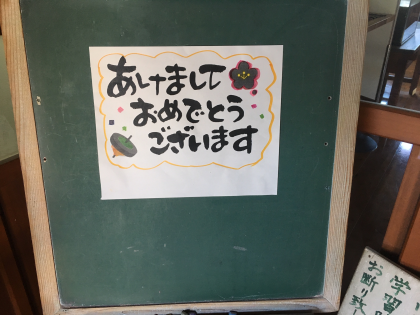 あけまして
おめでとう
ございます
学習
お断り致